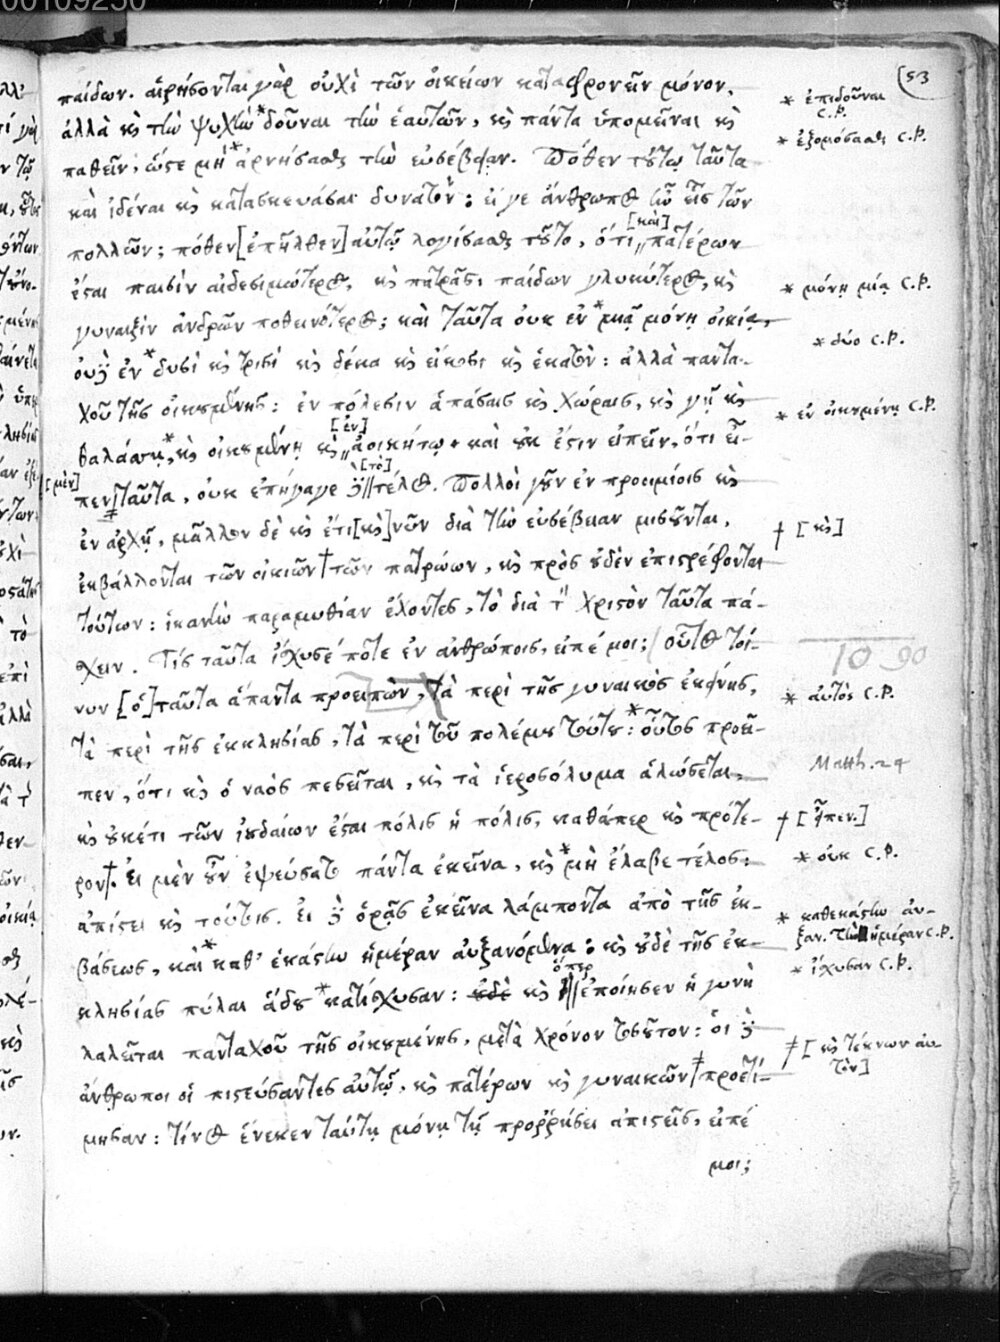 00109250
53
παίδων. αἱρήσονται γὰρ οὐχὶ τῶν οἰκείων καταφρονεῖν μόνον,
ἀλλὰ κὶ τὴν ψυχὴν * δοῦναι τὴν ἑαυτῶν, κὶ πάντα ὑπομεῖναι κὶ
παθεῖν, ὥςε μὴ * ἀρνήσαςθ τὴν εὐσέβειαν. Πόθεν τȣ́τῳ ταῦτα
καὶ ἰδέναι κὶ κατασκευάσαι δυνατὸν; εἴ γε ἄνθρωπος ἦν εἷς τῶν
πολλῶν; πόθεν [ἐπῆλθεν] αὐτῷ λογίσαςθ τȣ͂το, ὅτι [καὶ] πατέρων
ἔςαι παισὶν αἰδεσιμώτερος, κὶ πατράσι παίδων γλυκύτερος, κὶ
γυναιξὶν ἀνδρῶν ποθεινότερος; καὶ ταῦτα οὐκ ἐν * μιᾷ μόνῃ οἰκίᾳ,
οὐδὲ ἐν * δυσὶ κὶ τρισὶ κὶ δέκα κὶ εἴκοσι κὶ ἑκατὸν: ἀλλὰ παντα-
χοῦ τῆς οἰκȣμένης: ἐν πόλεσιν ἁπάσαις κὶ χώραις, κὶ γῇ κὶ
θαλάσσῃ, * κὶ οἰκȣμένῃ κὶ [ἐν] ἀοικήτῳ. καὶ ȣ̓κ ἔςιν εἰπεῖν, ὅτι εἶ-
[μὲν] πεν ταῦτα, οὐκ ἐπήγαγε δὲ [τὸ] τέλος. Πολλοὶ γȣ͂ν ἐν προοιμίοις κὶ
ἐν ἀρχῇ, μᾶλλον δὲ κὶ ἔτι [κὶ] νῦν διὰ τὴν εὐσέβειαν μισȣ͂νται,
ἐκβάλλονται τῶν οἰκιῶν † τῶν πατρώων, κὶ πρὸς ȣ̓δὲν ἐπιςρέφονται
τούτων: ἱκανὴν παραμυθίαν ἔχοντες, τὸ διὰ τὸν Χριςὸν ταῦτα πά-
σχειν. Τίς ταῦτα ἴσχυσέ ποτε ἐν ἀνθρώποις, εἰπέ μοι; οὗτος τοί-
νυν [ὁ] ταῦτα ἅπαντα προειπὼν, τὰ περὶ τῆς γυναικὸς ἐκείνης,
τὰ περὶ τῆς ἐκκλησίας, τὰ περὶ τοῦ πολέμȣ τούτȣ: * οὗτος προεῖ-
πεν, ὅτι κὶ ὁ ναὸς πεσεῖται, κὶ τὰ ἱεροσόλυμα ἁλώσεται,
κὶ ȣ̓κέτι τῶν ἰȣδαίων ἔςαι πόλις ἡ πόλις, καθάπερ κὶ πρότε-
ρον †. Εἰ μὲν ȣ̓͂ν ἐψεύσατο πάντα ἐκεῖνα, κὶ * μὴ ἔλαβε τέλος:
ἀπίςει κὶ τούτοις. Εἰ δὲ ὁρᾷς ἐκεῖνα λάμποντα ἀπὸ τῆς ἐκ-
βάσεως, καὶ * καθ' ἑκάςην ἡμέραν αὐξανόμενα: κὶ ȣ̓δὲ τῆς ἐκ-
κλησίας πύλαι ἅδȣ * κατίσχυσαν: κὶ ὅπερ ἐποίησεν ἡ γυνὴ
λαλεῖται πανταχοῦ τῆς οἰκȣμένης, μετὰ χρόνον τοσȣ͂τον: οἱ δὲ
ἄνθρωποι οἱ πιςεύσαντες αὐτῷ, κὶ πατέρων κὶ γυναικῶν ‡ προετί-
μησαν: τίνος ἕνεκεν ταύτῃ μόνῃ τῇ προῤῥήσει ἀπιςεῖς, εἰπέ
μοι;
* ἐπιδοῦναι C.P.
* ἐξομόσαςθ C.P.
* μόνῃ μίᾳ C.P.
* δύο C.P.
* ἐν οἰκȣμένῃ C.P.
† [κὶ]
10 90
* αὐτὸς C.P.
Matth. 24
† [ἦπεν.]
* οὐκ C.P.
* καθεκάςην αὐ-
ξαν. τὴν ἡμέραν C.P.
* ἴσχυσαν C.P.
‡ [κὶ τέκνων αὐ-
τὸν]